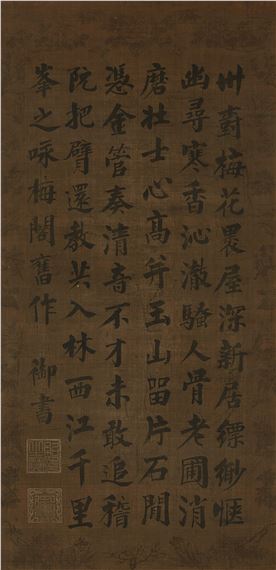 卅尌梅花畏屋深新居縹緲愜
幽尋寒香沁澈騷人骨老圃消
磨壯士心高并玉山留片石閒
憑金管奏清音不才未敢追稽
阮把臂還教共入林西江千里
峯之咏梅閣舊作 御書